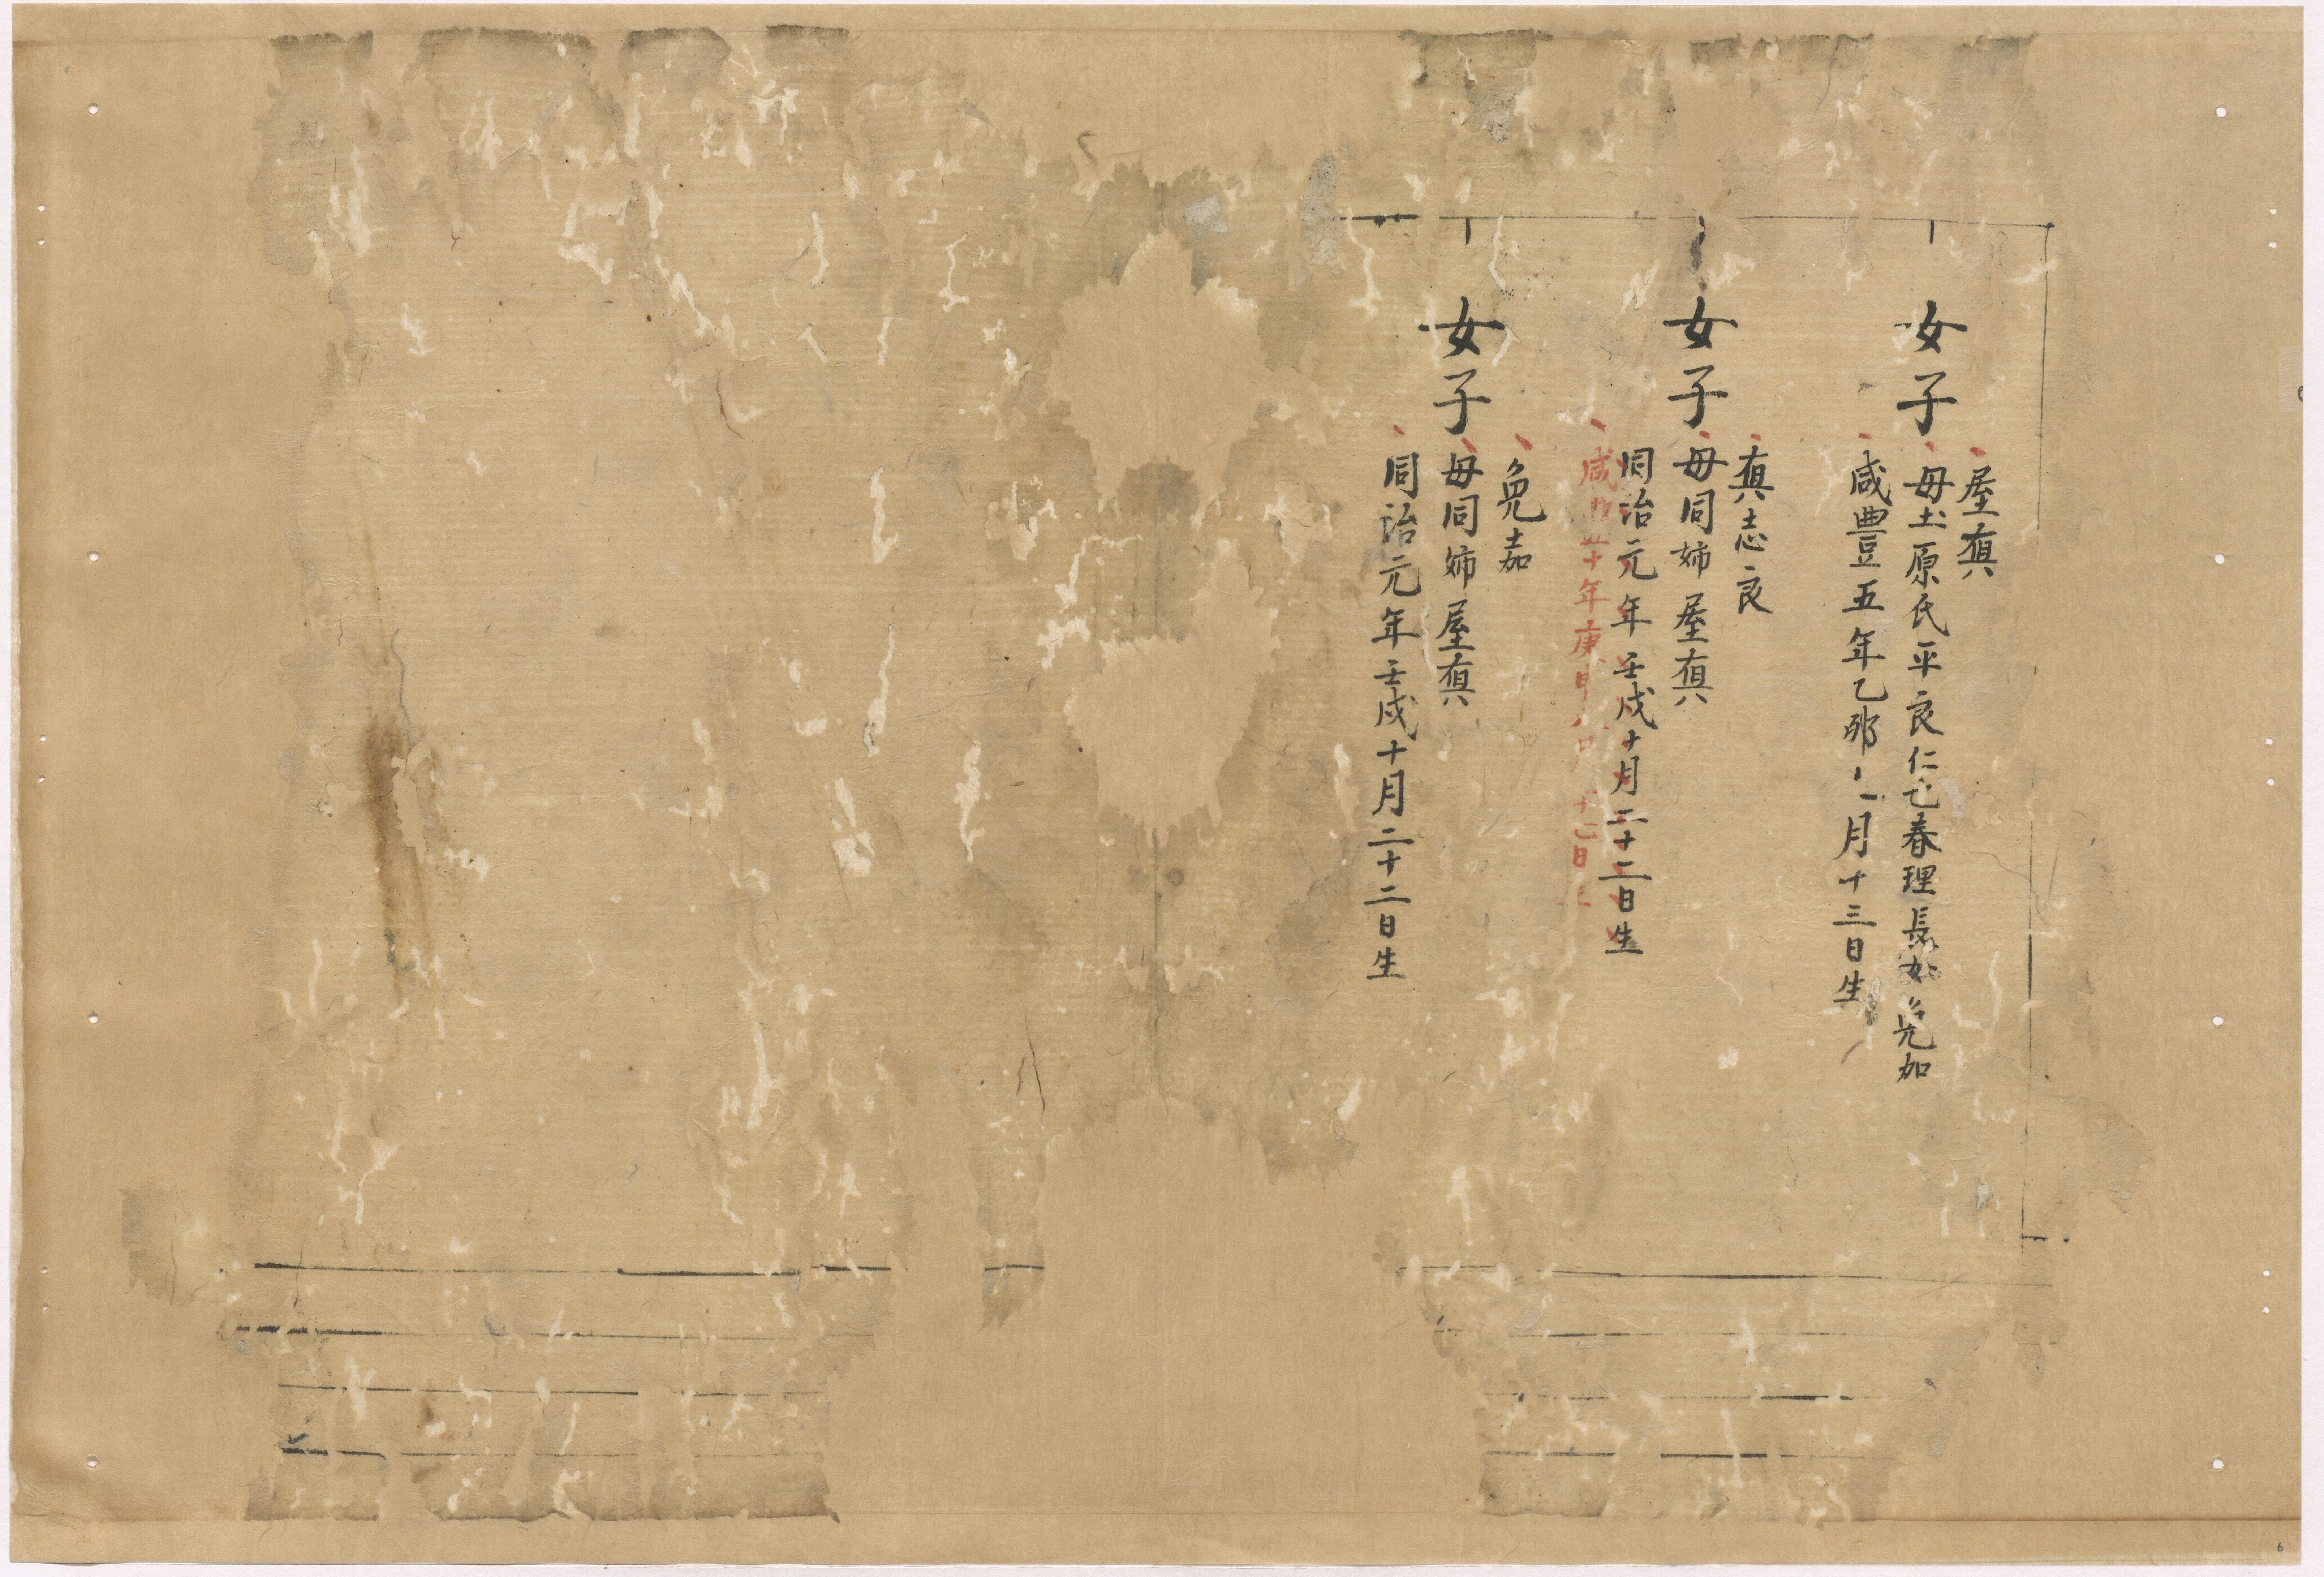 女子
屋真
母玉原氏平良仁也春理長女免加
咸豐五年乙卯十一月十三日生
女子
真志良
母同姉屋真
同治元年壬戌十月二十二日生
咸豐十年庚申八月十七日生
女子
兔嘉
母同姉屋真
同治元年壬戌十月二十二日生
6